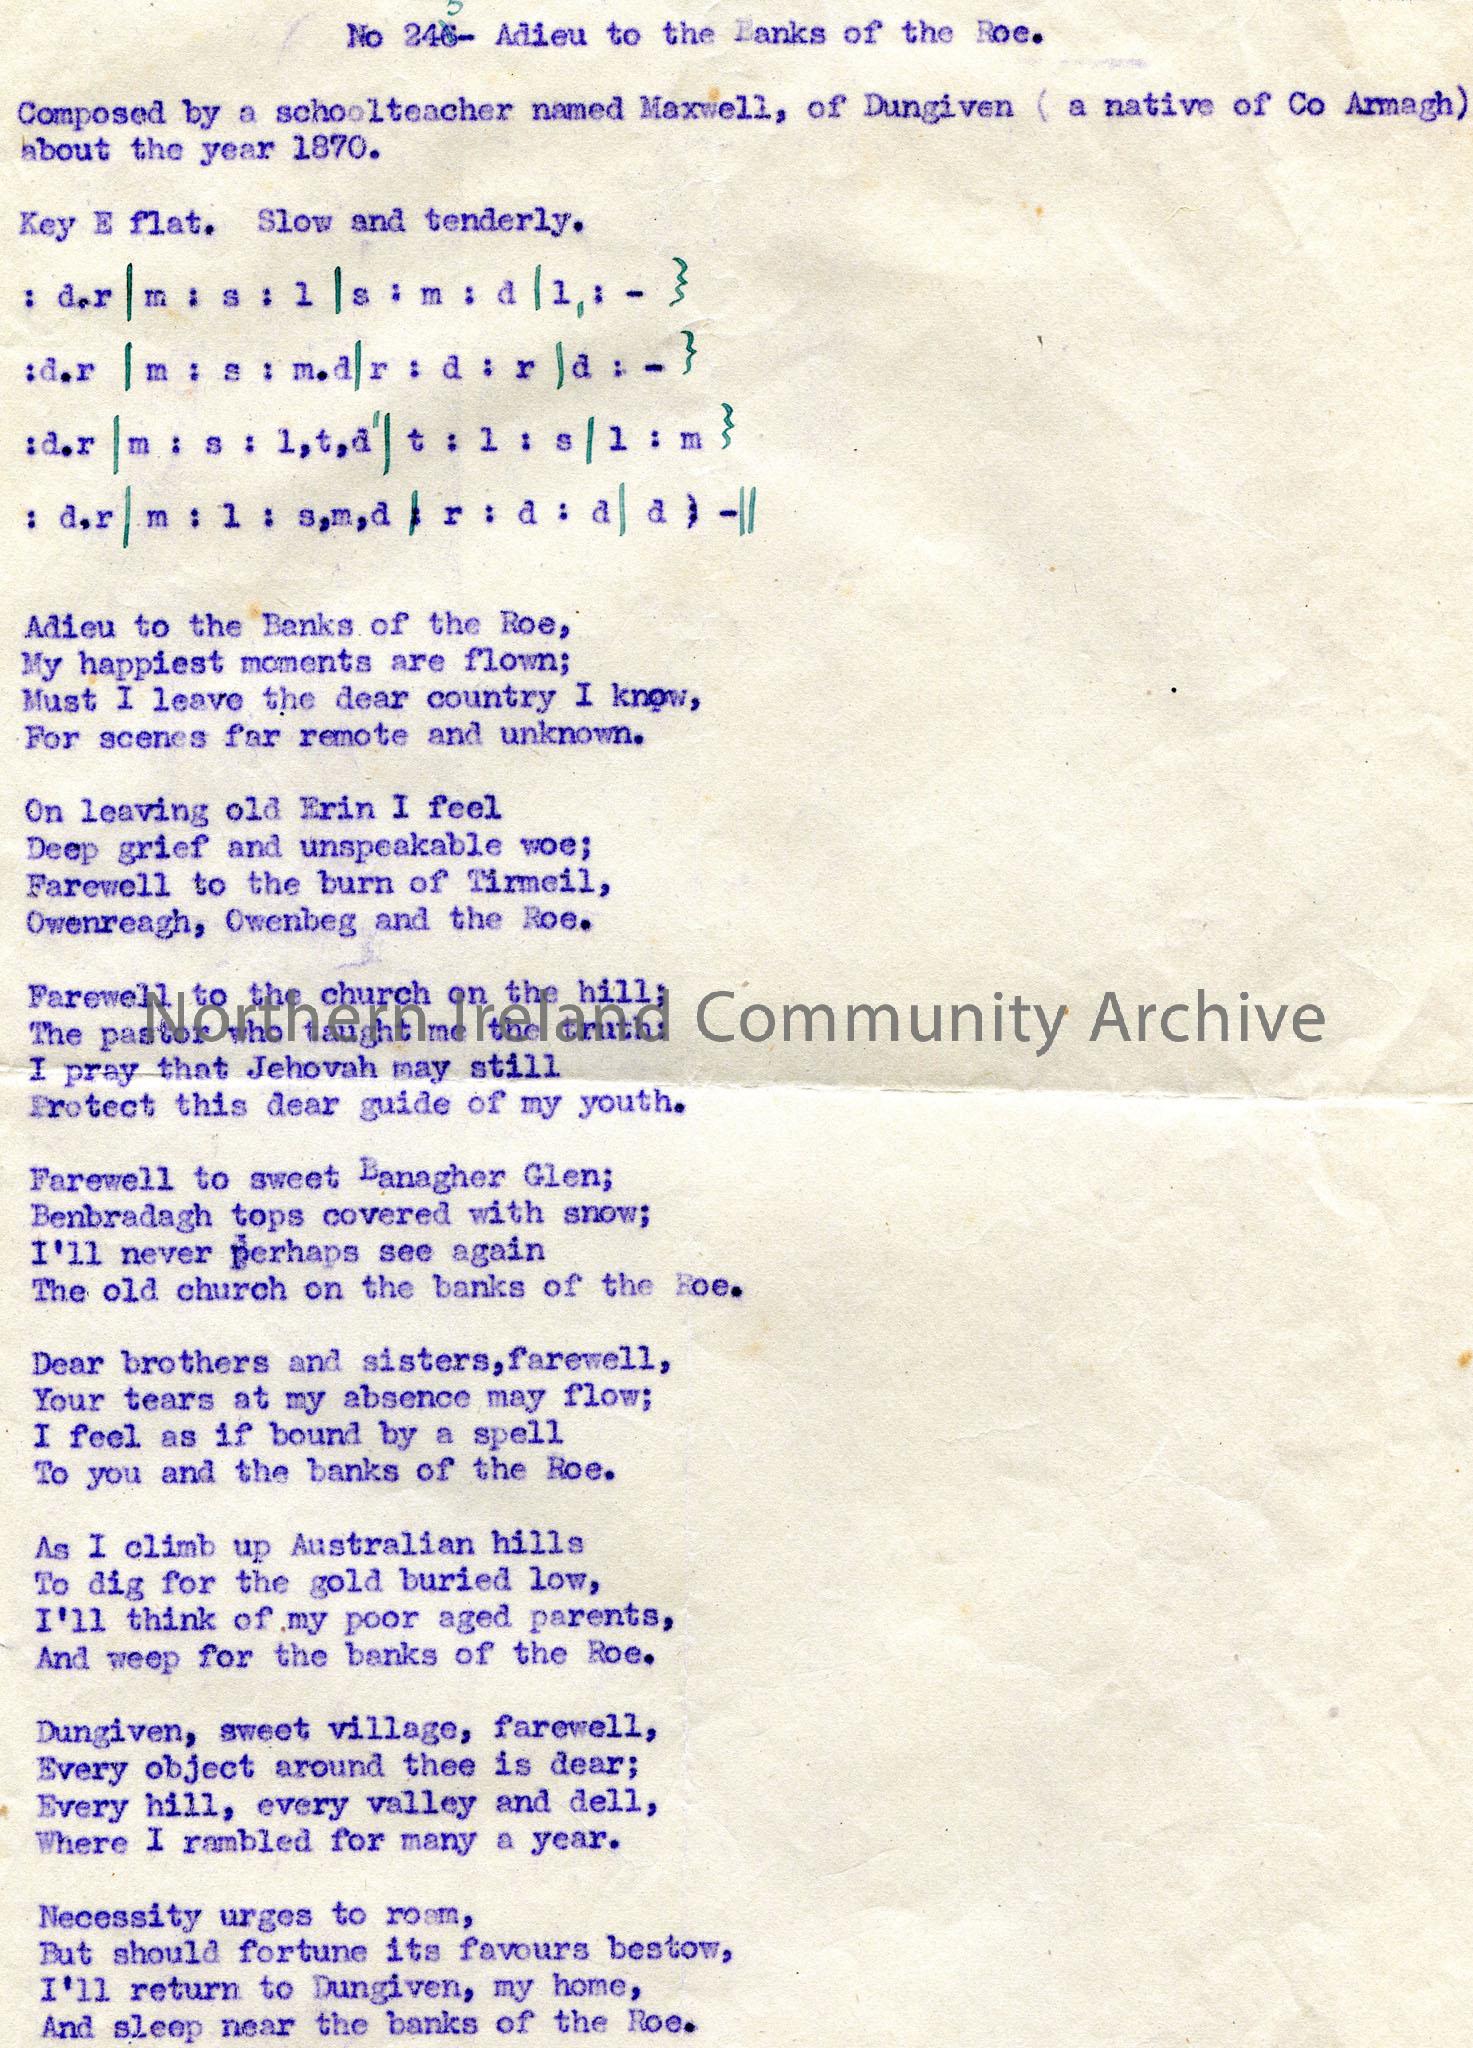 No 245- Adieu to the Banks of the Roe.
Composed by a schoolteacher named Maxwell, of Dungiven ( a native of Co Armagh)
about the year 1870.
Key E flat. Slow and tenderly.
: d.r | m : s : l | s : m : d | l, : - }
:d.r | m : s : m.d | r : d : r | d : - }
:d.r | m : s : l,t,d' | t : l : s | l : m }
: d.r | m : l : s,m,d | r : d : d | d : - ||
Adieu to the Banks of the Roe,
My happiest moments are flown;
Must I leave the dear country I know,
For scenes far remote and unknown.
On leaving old Erin I feel
Deep grief and unspeakable woe;
Farewell to the burn of Tirmeil,
Owenreagh, Owenbeg and the Roe.
Farewell to the church on the hill;
The pastor who taught me the truth:
Northern Ireland Community Archive
I pray that Jehovah may still
Protect this dear guide of my youth.
Farewell to sweet Banagher Glen;
Benbradagh tops covered with snow;
I'll never perhaps see again
The old church on the banks of the Roe.
Dear brothers and sisters,farewell,
Your tears at my absence may flow;
I feel as if bound by a spell
To you and the banks of the Roe.
As I climb up Australian hills
To dig for the gold buried low,
I'll think of my poor aged parents,
And weep for the banks of the Roe.
Dungiven, sweet village, farewell,
Every object around thee is dear;
Every hill, every valley and dell,
Where I rambled for many a year.
Necessity urges to roam,
But should fortune its favours bestow,
I'll return to Dungiven, my home,
And sleep near the banks of the Roe.